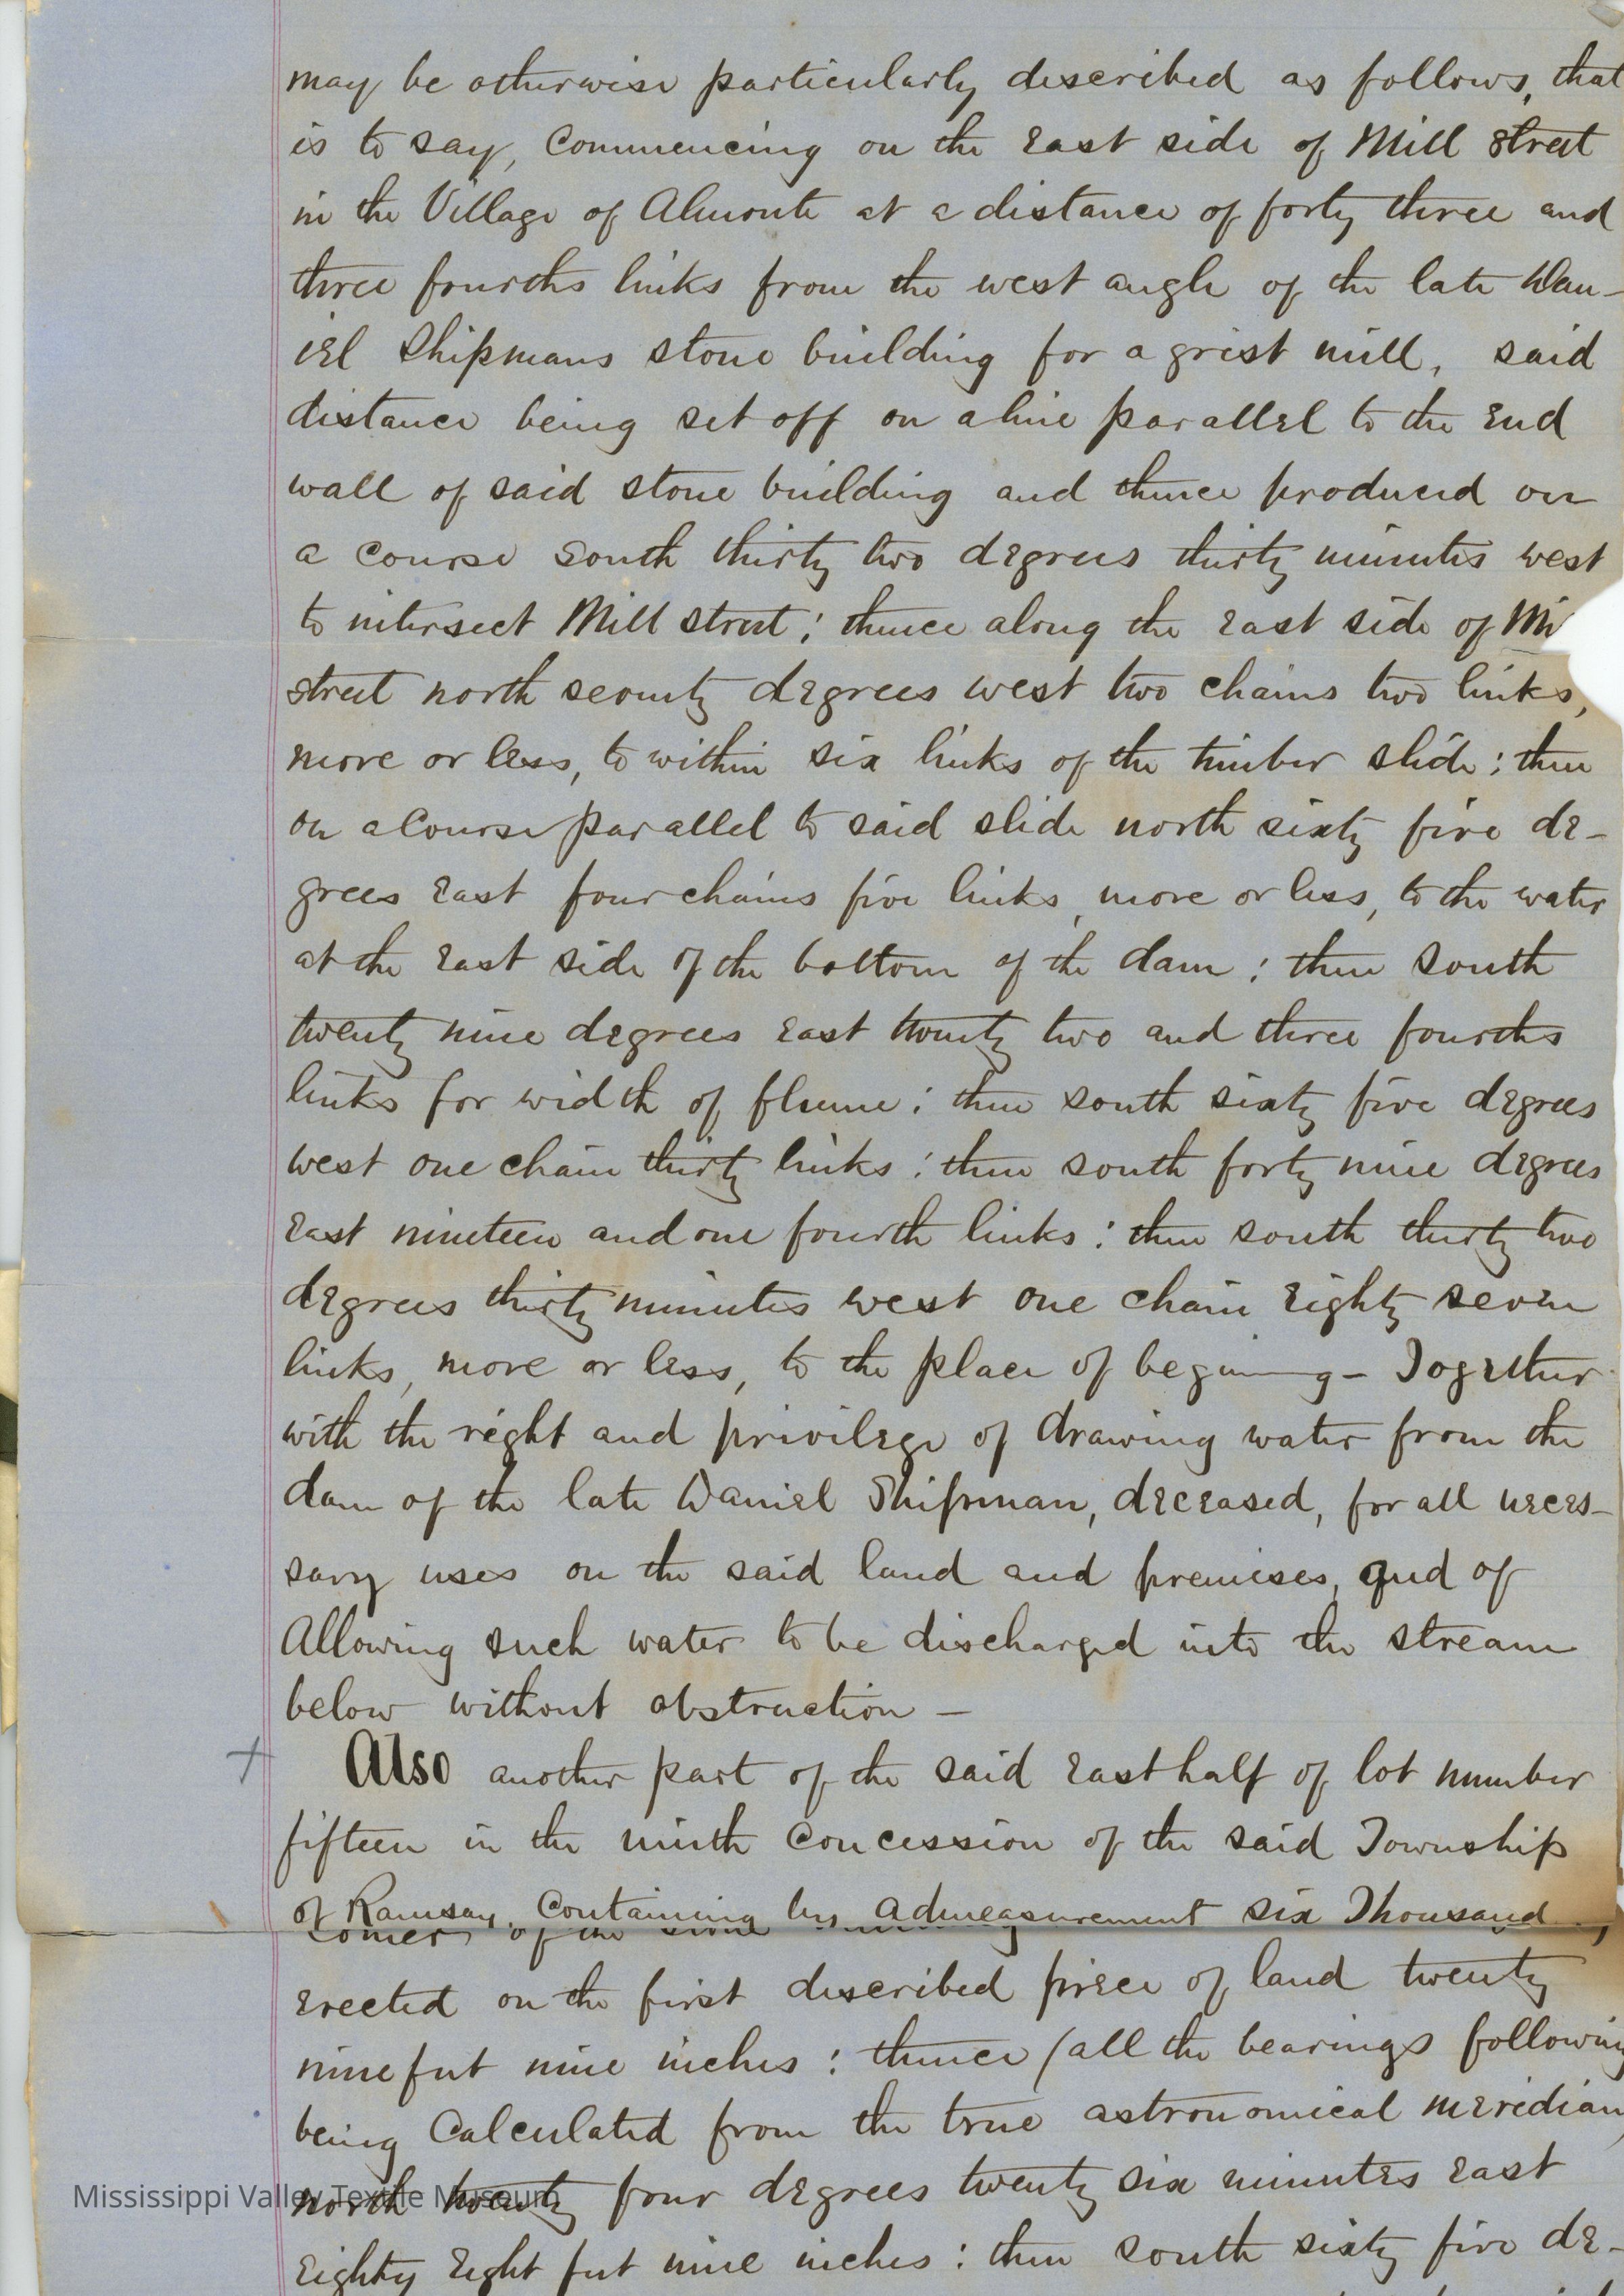 may be otherwise particularly described as follows, that
is to say, Commencing on the east side of Mill street
in the Village of Almonte at a distance of forty three and
three fourths links from the west angle of the late Dan-
iel Shipmans stone building for a grist mill, said
distance being set off on a line parallel to the end
wall of said stone building and thence produced on
a course south thirty two degrees thirty minutes west
to intersect Mill street; thence along the east side of Mi
street north seventy degrees west two chains two links,
more or less, to within six links of the timber slide; then
on a Course parallel to said slide north sixty five de-
grees east four chains five links, more or less, to the water
at the east side of the bottom of the dam; then south
twenty nine degrees east twenty two and three fourths
links for width of flume; then south sixty five degrees
west one chain thirty links; then south forty nine degrees
east nineteen and one fourth links; then south thirty two
degrees thirty minutes west one chain eighty seven
links, more or less, to the place of begining - Together
with the right and privilege of drawing water from the
dam of the late Daniel Shipman, deceased, for all neces-
sary uses on the said land and premises, and of
Allowing such water to be discharged into the stream
below without obstruction -
+ Also another part of the said east half of lot number
fifteen in the ninth Concession of the said Township
of Ramsay, Containing by admeasurement six Thousand
corner of the stone
erected on the first described piece of land twenty
nine feet nine inches; thence (all the bearings following
being Calculated from the true astronomical meridian)
north twenty four degrees twenty six minutes east
eighty eight feet nine inches; then south sixty five de-
Mississippi Valley Textile Museum